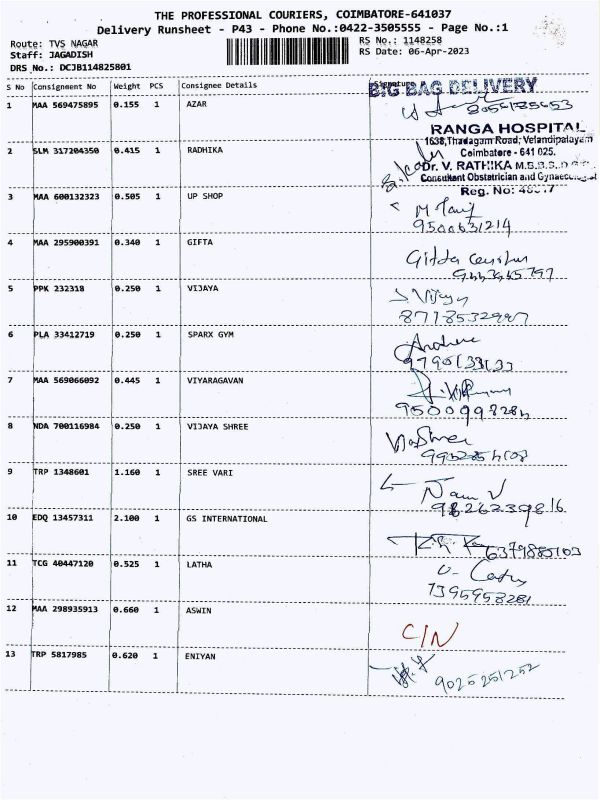 THE PROFESSIONAL COURIERS, COIMBATORE-641037
Delivery Runsheet - P43 - Phone No.:0422-3505555 - Page No.:1
Route: TVS NAGAR RS No.: 1148258
Staff: JAGADISH RS Date: 06-Apr-2023
DRS No.: DCJB114825801
S No Consignment No Weight PCS Consignee Details Signature
BIG BAG DELIVERY
1 MAA 569475895 0.155 1 AZAR
RANGA HOSPITAL
1638,Thadagam Road, Velandipalayam
Coimbatore - 641 025.
Dr. V. RATHIKA M.B.B.S.
Consultant Obstetrician and Gynaecologist
Reg. No:
2 SLM 317204350 0.415 1 RADHIKA
3 MAA 600132323 0.505 1 UP SHOP
9500631214
4 MAA 295900391 0.340 1 GIFTA
Gifta
5 PPK 232318 0.250 1 VIJAYA
S. Vijaya
6 PLA 33412719 0.250 1 SPARX GYM
7 MAA 569066092 0.445 1 VIYARAGAVAN
8 NDA 700116984 0.250 1 VIJAYA SHREE
9 TRP 1348601 1.160 1 SREE VARI
9826239816
10 EDQ 13457311 2.100 1 GS INTERNATIONAL
6379885103
11 TCG 40447120 0.525 1 LATHA
12 MAA 298935913 0.660 1 ASWIN
C/N
13 TRP 5817985 0.620 1 ENIYAN
9025251252